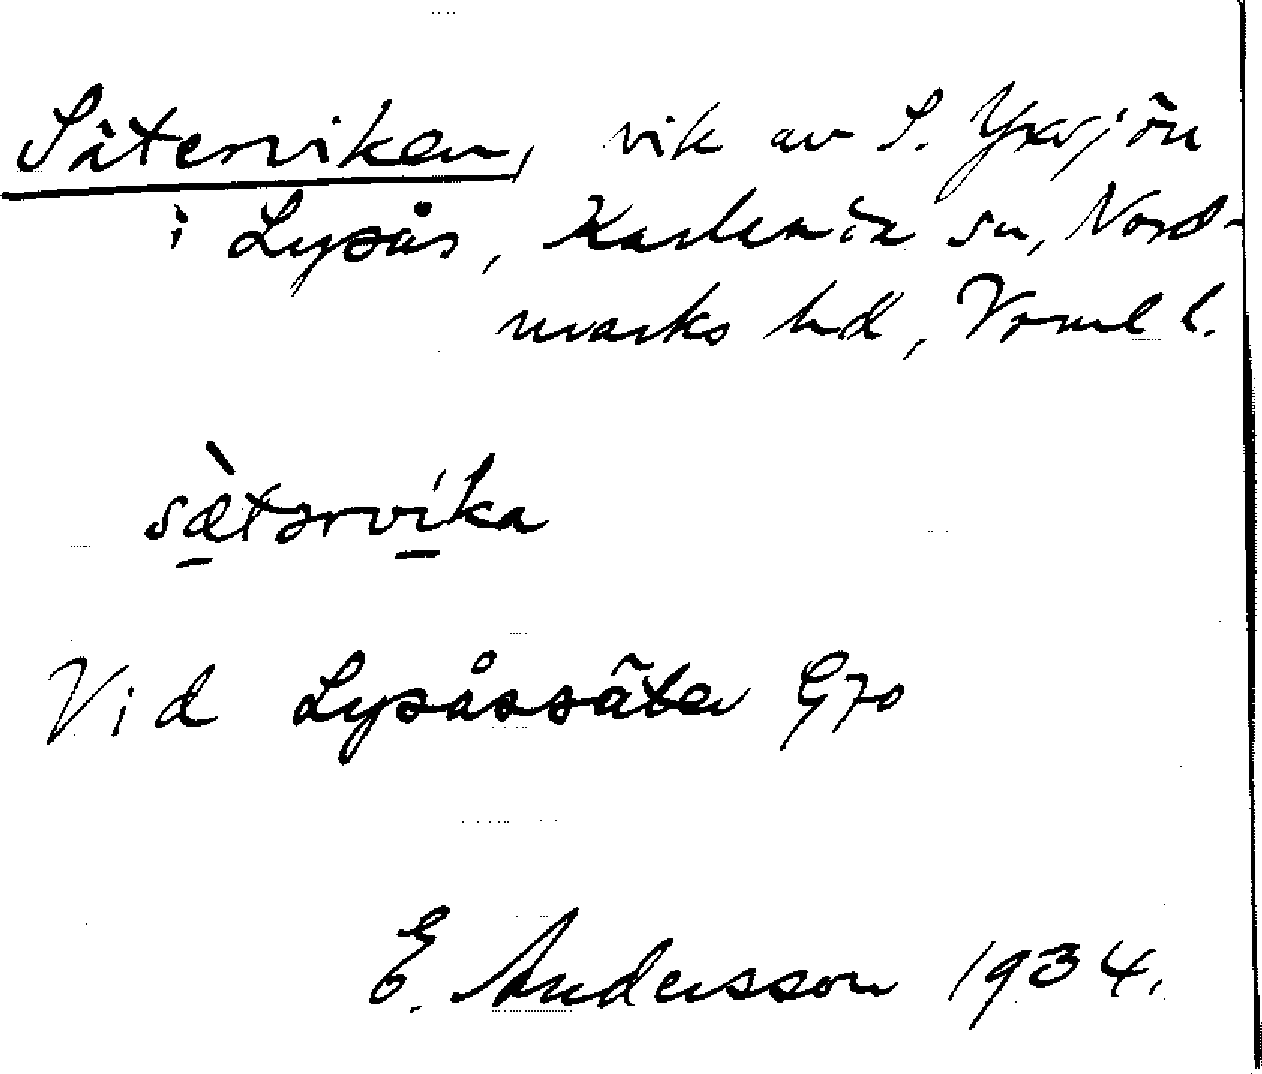 Säterviken, vik av S. Yxsjön
i Lysås, Karlanda sn, Nord-
marks hd, Vrml l.
sæ̀tərvíka
Vid Lysåssäter G70
E. Andersson 1934.